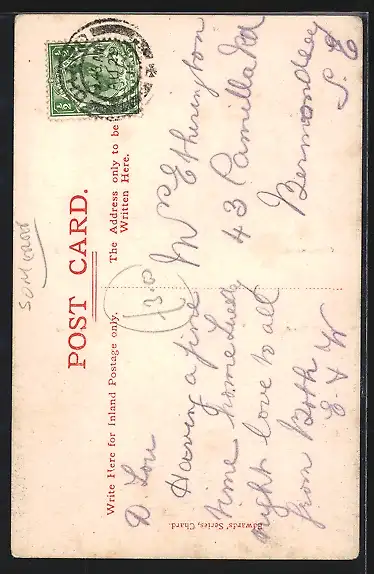 POST CARD.
Write Here for Inland Postage only.
The Address only to be
Written Here.
D. Lou
Having a fine
time home Tuesday
night love to all
from Both
E & W
Mrs Etherington
43 Camilla Rd
Bermondsey
S. E
13.0
SOMERSET
Edwards' Series, Chard.